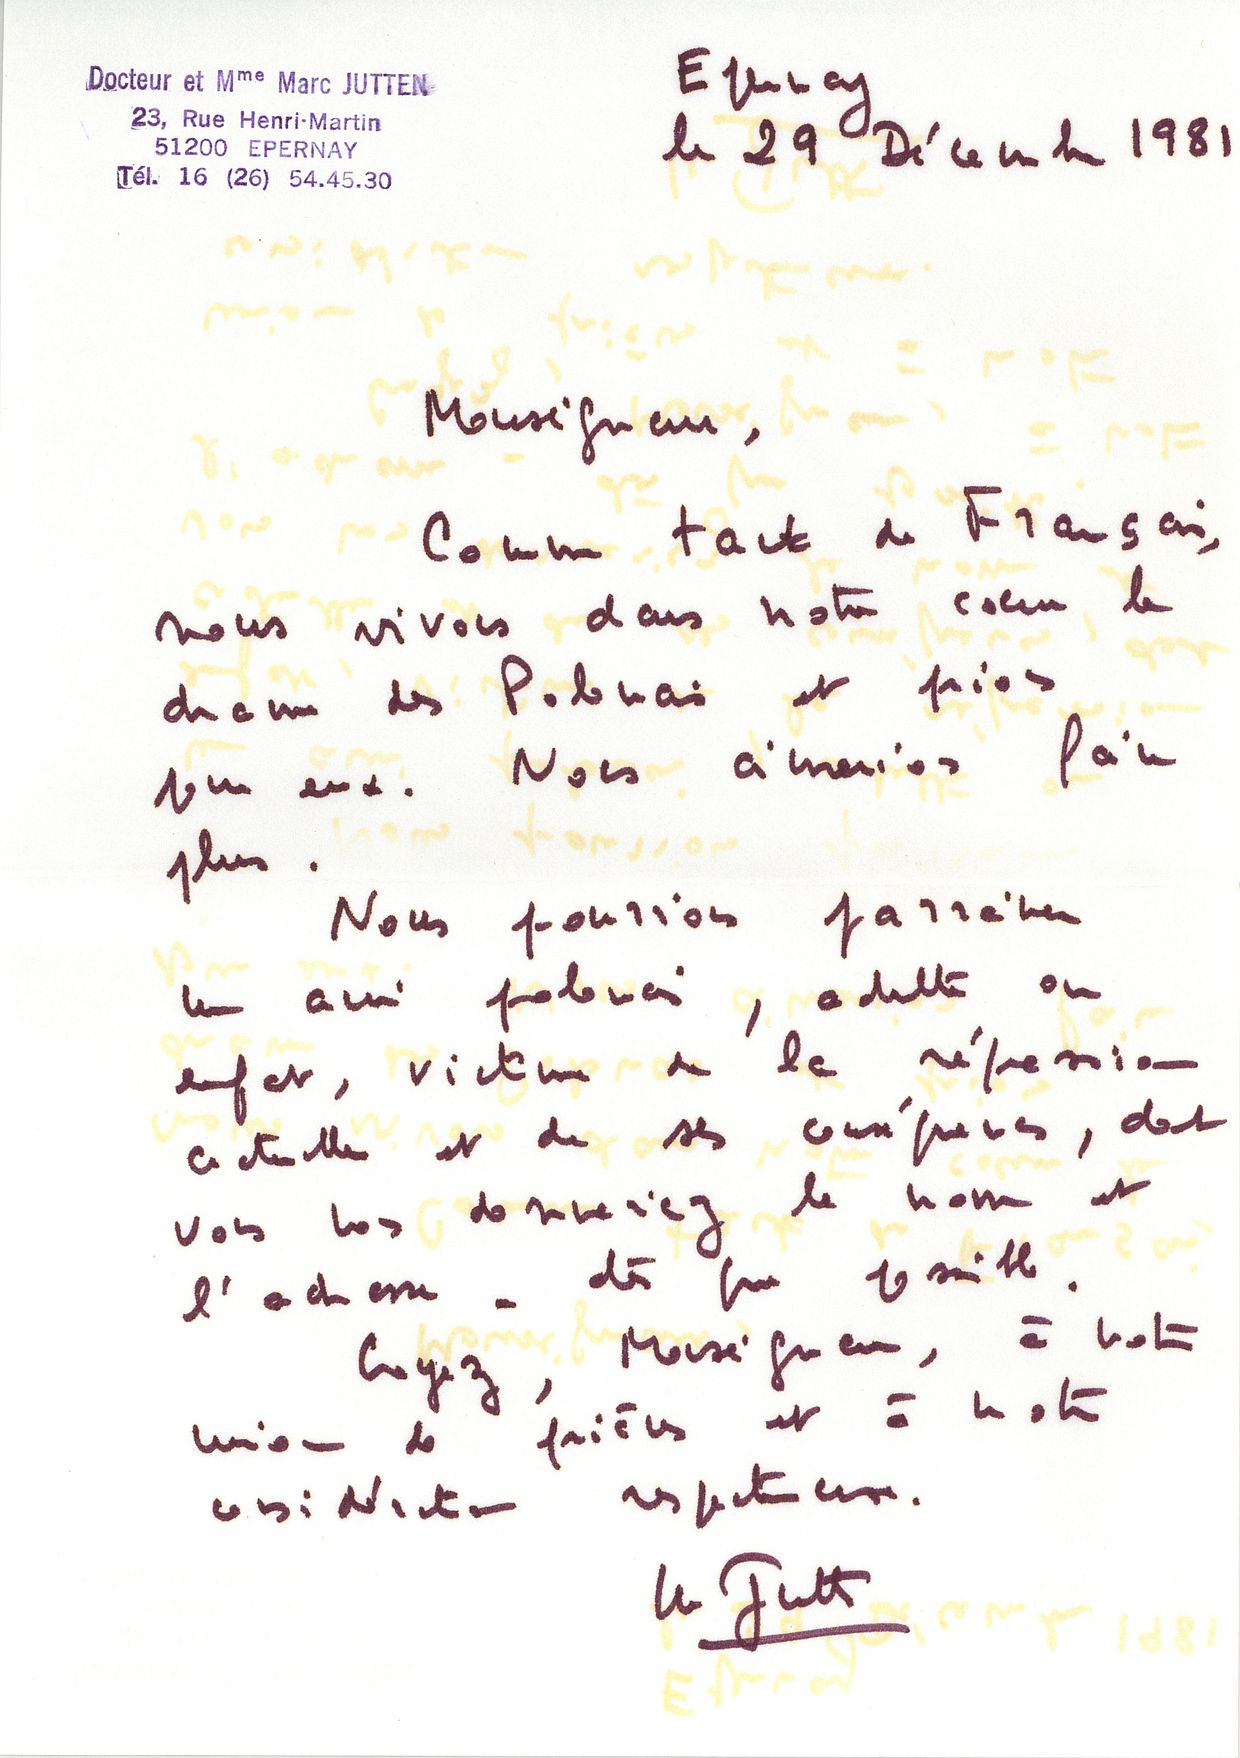 Docteur et Mme Marc JUTTEN
23, Rue Henri-Martin
51200 EPERNAY
Tél. 16 (26) 54.45.30
Epernay
le 29 Décembre 1981
Monseigneur,
Comme tant de Français,
nous vivons dans notre coeur le
drame des Polonais et prions
pour eux. Nous aimerions faire
plus.
Nous pourrions parrainer
un ami polonais, adulte ou
enfant, victime de la répression
actuelle et de ses conséquences, dont
vous nous donneriez le nom et
l'adresse - dès que possible.
Croyez, Monseigneur, à notre
union de prières et à notre
considération respectueuse.
M Jutten